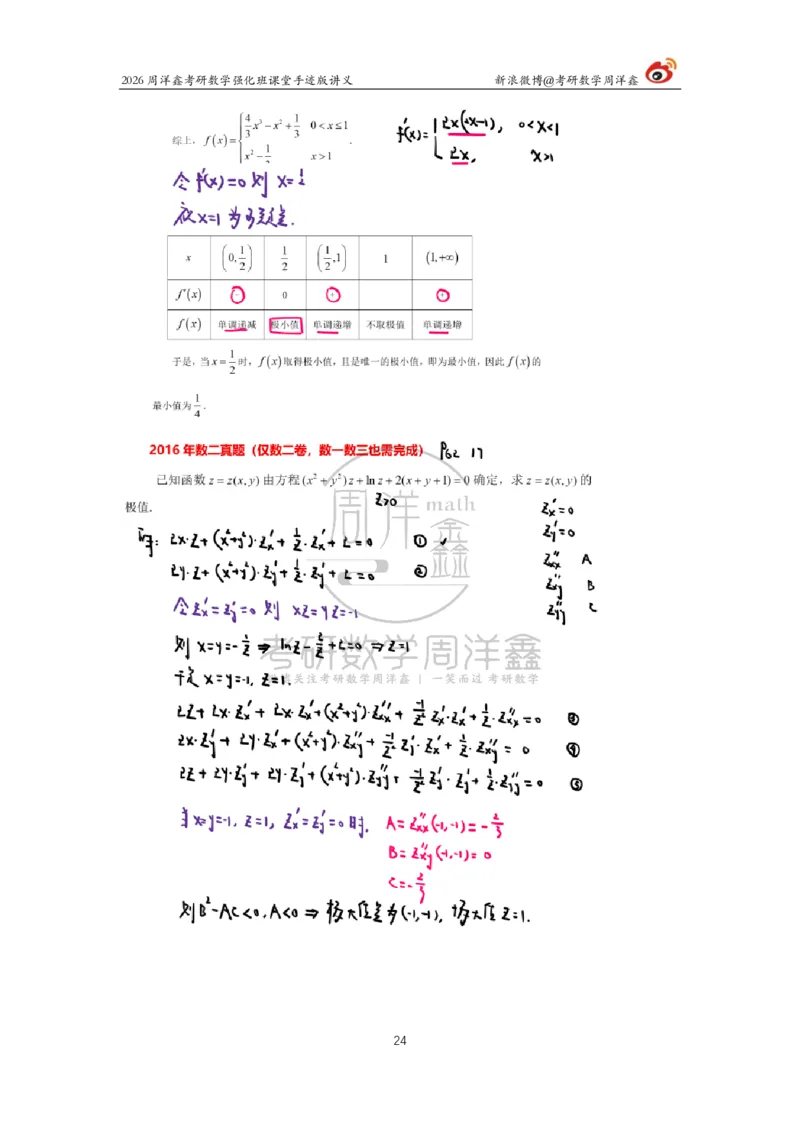 2026 周洋鑫考研数学强化班课堂手迹版讲义 新浪微博@考研数学周洋鑫
综上，f(x)={4/3 x³−x²+1/3 0<x≤1
x²−1/3 x>1 .
f'(x)={2x(2x-1), 0<x<1
2x, x>1
令f'(x)=0 则 x=1/2
x=1 为
x (0,1/2) 1/2 (1/2,1) 1 (1,+∞)
f'(x) - 0 + +
f(x) 单调递减 极小值 单调递增 不取极值 单调递增
于是，当x=1/2 时，f(x)取得极小值，且是唯一的极小值，即为最小值，因此f(x)的
最小值为 1/4 .
2016 年数二真题（仅数二卷，数一数三也需完成） P62 17
已知函数z=z(x,y)由方程(x²+y²)z+ln z+2(x+y+1)=0确定，求z=z(x,y)的
极值.
z>0
z'x=0
z'y=0
z''xx A
z''xy B
z''yy C
2x·z+(x²+y²)·z'x+1/z·z'x+2=0 ①
2y·z+(x²+y²)·z'y+1/z·z'y+2=0 ②
令z'x=z'y=0 则 xz=yz=-1
则 x=y=-1/z ⇒ lnz-2/z+2=0 ⇒z=1
于是 x=y=-1, z=1.
2z+2x·z'x+2x·z'x+(x²+y²)·z''xx+(-1/z²)z'x·z'x+1/z·z''xx=0 ③
2x·z'y+2y·z'x+(x²+y²)·z''xy+(-1/z²)z'y·z'x+1/z·z''xy=0 ④
2z+2y·z'y+2y·z'y+(x²+y²)·z''yy+(-1/z²)z'y·z'y+1/z·z''yy=0 ⑤
当x=y=-1, z=1, z'x=z'y=0时, A=z''xx(-1,-1)=-2/3
B=z''xy(-1,-1)=0
C=-2/3
则B²-AC<0, A<0 ⇒ 极大值点为(-1,-1), 极大值z=1.
周洋鑫 math
考研数学周洋鑫
关注考研数学周洋鑫 | 一笑而过 考研数学
24